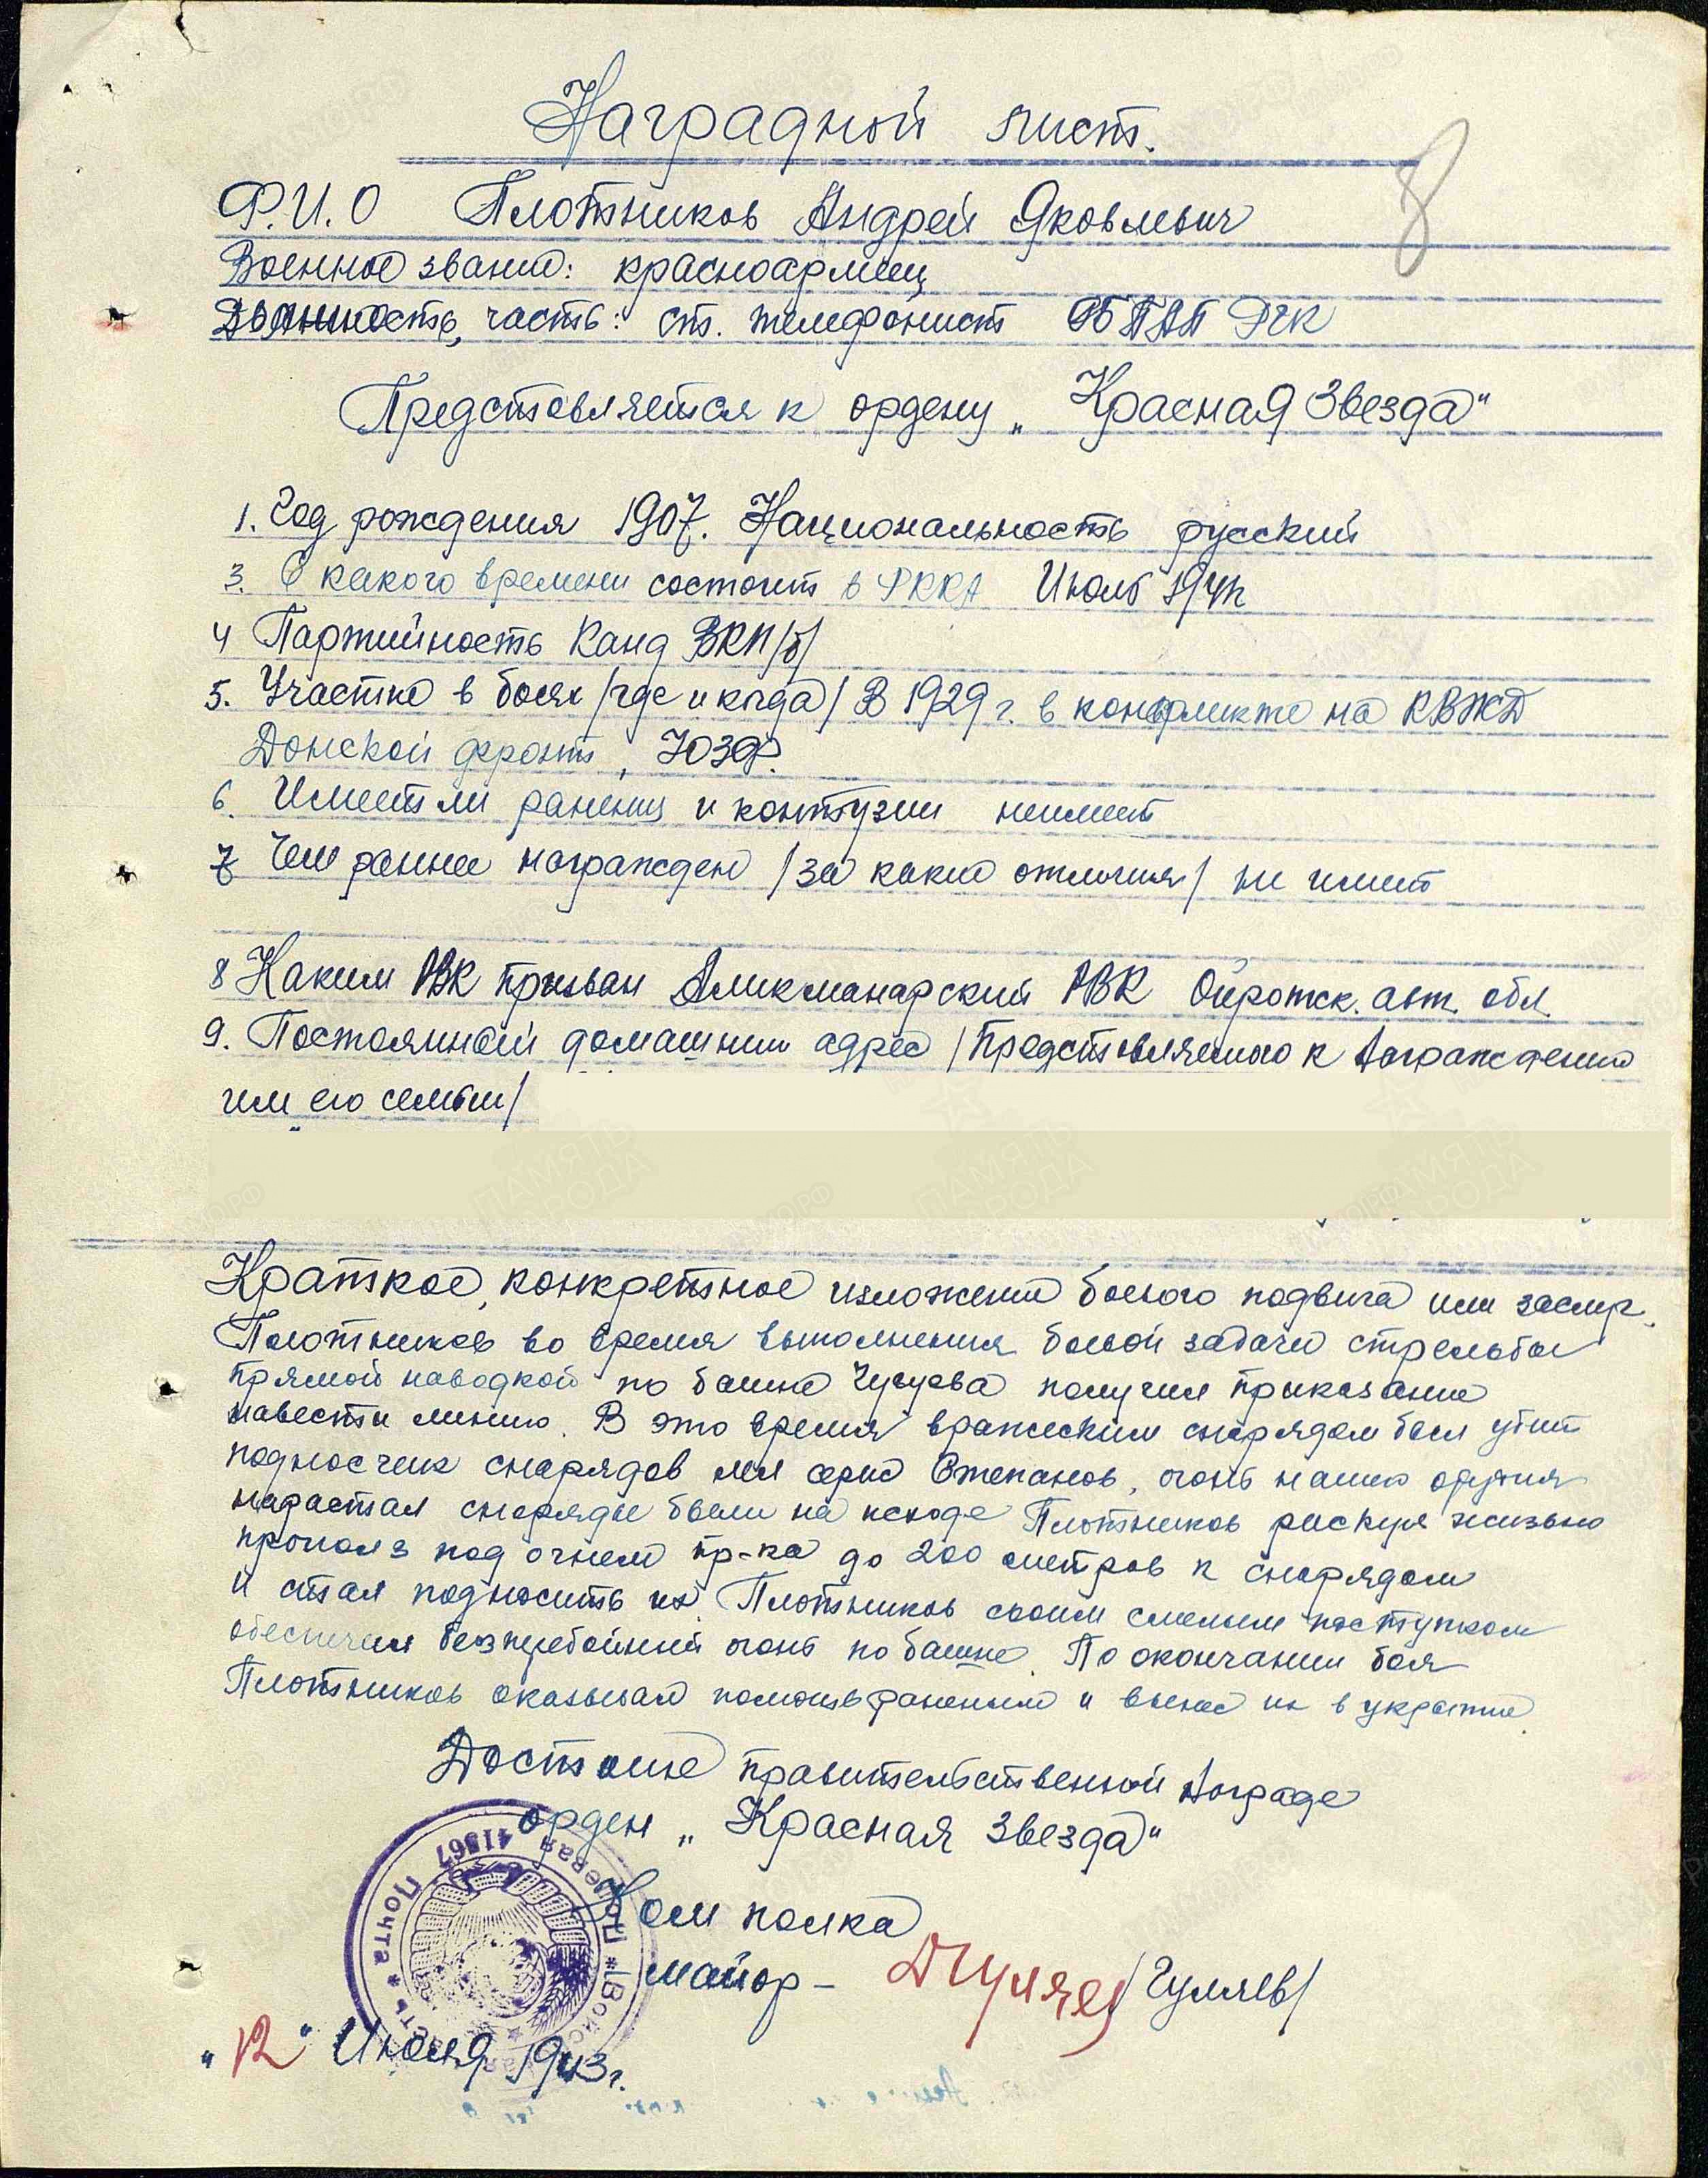 Наградной лист.
8
Ф.И.О Плотников Андрей Яковлевич
Военное звание: красноармеец
Должность, часть: ст. телефонист РГК
Представляется к ордену „Красная Звезда"
1. Год рождения 1907. Национальность русский
3. С какого времени состоит в РККА Июль
4 Партийность Канд ВКП/б/
5. Участие в боях /где и когда/ В 1929 г. в конфликте на КВЖД
Донской фронт, ЮЗФ.
6. Имеет ли ранения и контузии неимеет
7 Чем ранее награжден /за какие отличия/ не имеет
8 Каким РВК призван РВК Ойротск. авт. обл.
9. Постоянный домашний адрес /Представляемого к награждению
или его семьи/
Краткое, конкретное изложение боевого подвига или заслуг.
Плотников во время выполнения боевой задачи стрельбы
прямой наводкой по башне Чугуева получил приказание
навести линию. В это время вражеским снарядом был убит
подносчик снарядов Степанов, огонь нашего орудия
нарастал снаряды были на исходе Плотников рискуя жизнью
прополз под огнем пр-ка до 200 метров к снарядам
и стал подносить их. Плотников своим смелым поступком
обеспечил безперебойный огонь по башне. По окончании боя
Плотников оказывал помощь раненым и вынес их в укрытие.
Достоин правительственной награде
орден „Красная Звезда"
Ком полка
майор - /Гуляев/
„12" Июня 1943г.
Полевая Почта 41567 * Войсковая часть *
ПАМЯТЬ НАРОДА